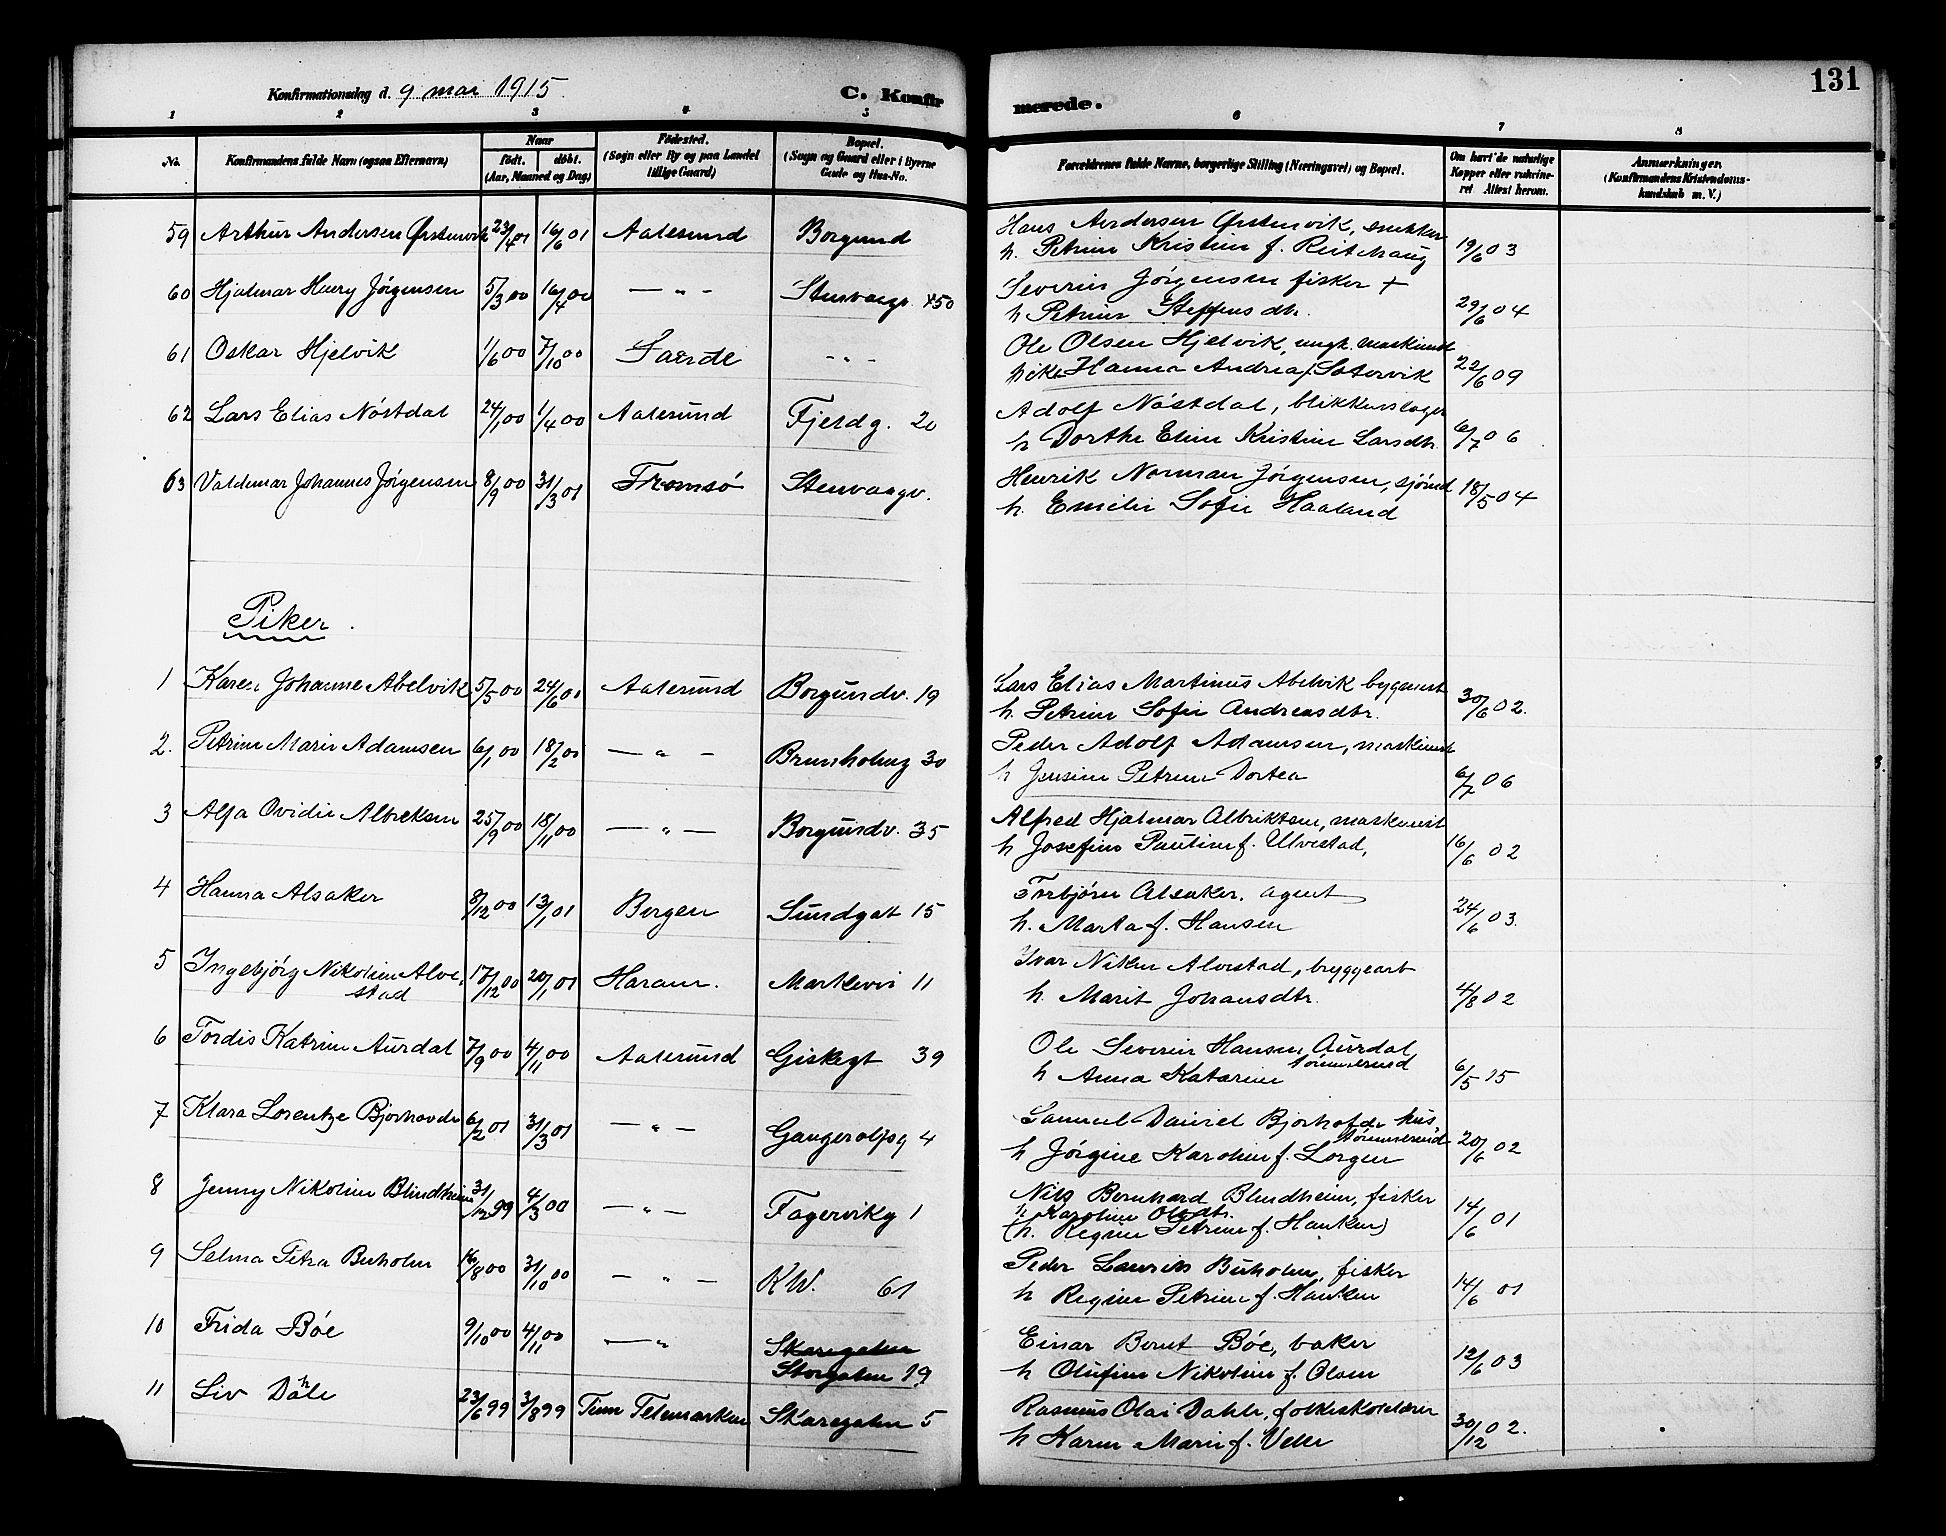 131
Konfirmationsdag d. 9 mai 1915
C. Konfirmerede.
1 2 3 4 5 6 7 8
No. Konfirmandens fulde Navn (ogsaa Efternavn) Naar født. døbt. (Aar, Maaned og Dag) Fødested. (Sogn eller By og paa Landet tillige Gaard) Bopæl. (Sogn og Gaard eller i Byerne Gade og Hus-No. Forældrenes fulde Navne, borgerlige Stilling (Næringsvei) og Bopæl. Om havt de naturlige Kopper eller vakcineret Attest herom. Anmærkninger. (Konfirmandens Kristendomskundskab m. V.)
59 Arthur Andersen Ørstenvik 23/4 01 16/6 01 Aalesund Borgund Hans Andersen Ørstenvik, snekker
h. Petrine Kristine f. Reitehaug 19/6 03
60 Hjalmar Harry Jørgensen 5/3 00 16/4 00 — „ — Stenvaagv. 50 Severin Jørgensen fisker +
h Petrine Steffensdtr. 29/6 04
61 Oskar Hjelvik 1/6 00 7/10 00 - „ - Ole Olsen Hjelvik, ungk. maskinist
Hanna Andrea 22/6 09
62 Lars Elias Nøstdal 24/1 00 1/4 00 Aalesund Fjeldg. 20 Adolf Nøstdal, blikkenslager
h Dorthe Eline Kristine Larsdtr. 6/7 06
63 Valdemar Johannes Jørgensen 8/9 00 31/3 01 Tromsø Stenvaagv. Henrik Norman Jørgensen, sjømd
h. Emilie Sofie Haaland 18/5 04
Piker.
1 Karen Johanne Abelvik 5/5 00 24/6 00 Aalesund Borgundv. 19 Lars Elias Martinus Abelvik
h. Petrine Sofie Andreasdtr. 30/6 02.
2. Petrine Marie Adamsen 6/1 00 18/2 00 — „ — Brunholmg 30 Peder Adolf Adamsen, maskinist
h Jensine Petrine Dortea 6/7 06
3 Alfa Ovidie Albrektsen 25/9 00 18/11 00 — „ — Borgundv. 35 Alfred Hjalmar Albriktsen, maskinist
h Josefine Pauline f. Ulvestad, 16/6 02
4 Hanna Alsaker 8/12 00 13/1 01 Bergen Sundgat 15 Torbjørn Alsaker. agent
h. Marta f. Hansen 24/6 03.
5 Ingebjørg Nikoline Alve- 17/12 00 20/1 01 Haram. Markevei 11 Ivar Alvestad, bryggearb
stad h. Marit Johansdtr. 4/8 02
6 Tordis Katrine Aurdal 7/9 00 4/11 00 Aalesund Giskegt 39 Ole Severin Hansen Aurdal
tømmermd
h Anna Katarine 6/5 15
7 Klara Lorentze Bjørhovde 6/2 01 31/3 01 — „ — Gangerolfsg 4 Samuel Daniel Bjørhofde hus
tømmermd
h Jørgine Karoline f. Lorgen 20/6 02
8 Jenny Nikoline Blindheim 31/12 99 4/3 00 — „ — Fagervikg 1 Nils Bernhard Blindheim, fisker
h Karoline Olsdtr.
(h. Regine Petrine f. Hanken) 14/6 01
9 Selma Petra Buholm 16/8 00 31/10 00 — „ — K.W. 61 Peder Laurits Buholm, fisker
h Regine Petrine f. Hanken 14/6 01
10 Frida Bøe 9/10 00 4/11 00 — „ Skaregaten Einar Bernt Bøe, baker
Storgaten 19 h Olufine Nikoline f. Olsen 12/6 03
11 Liv Dahle 23/6 99 3/8 99 Tinn Telemarken Skaregaten 5 Rasmus Olai Dahle, folkeskolelærer
h Karen Marie f. Velle 30/12 02.